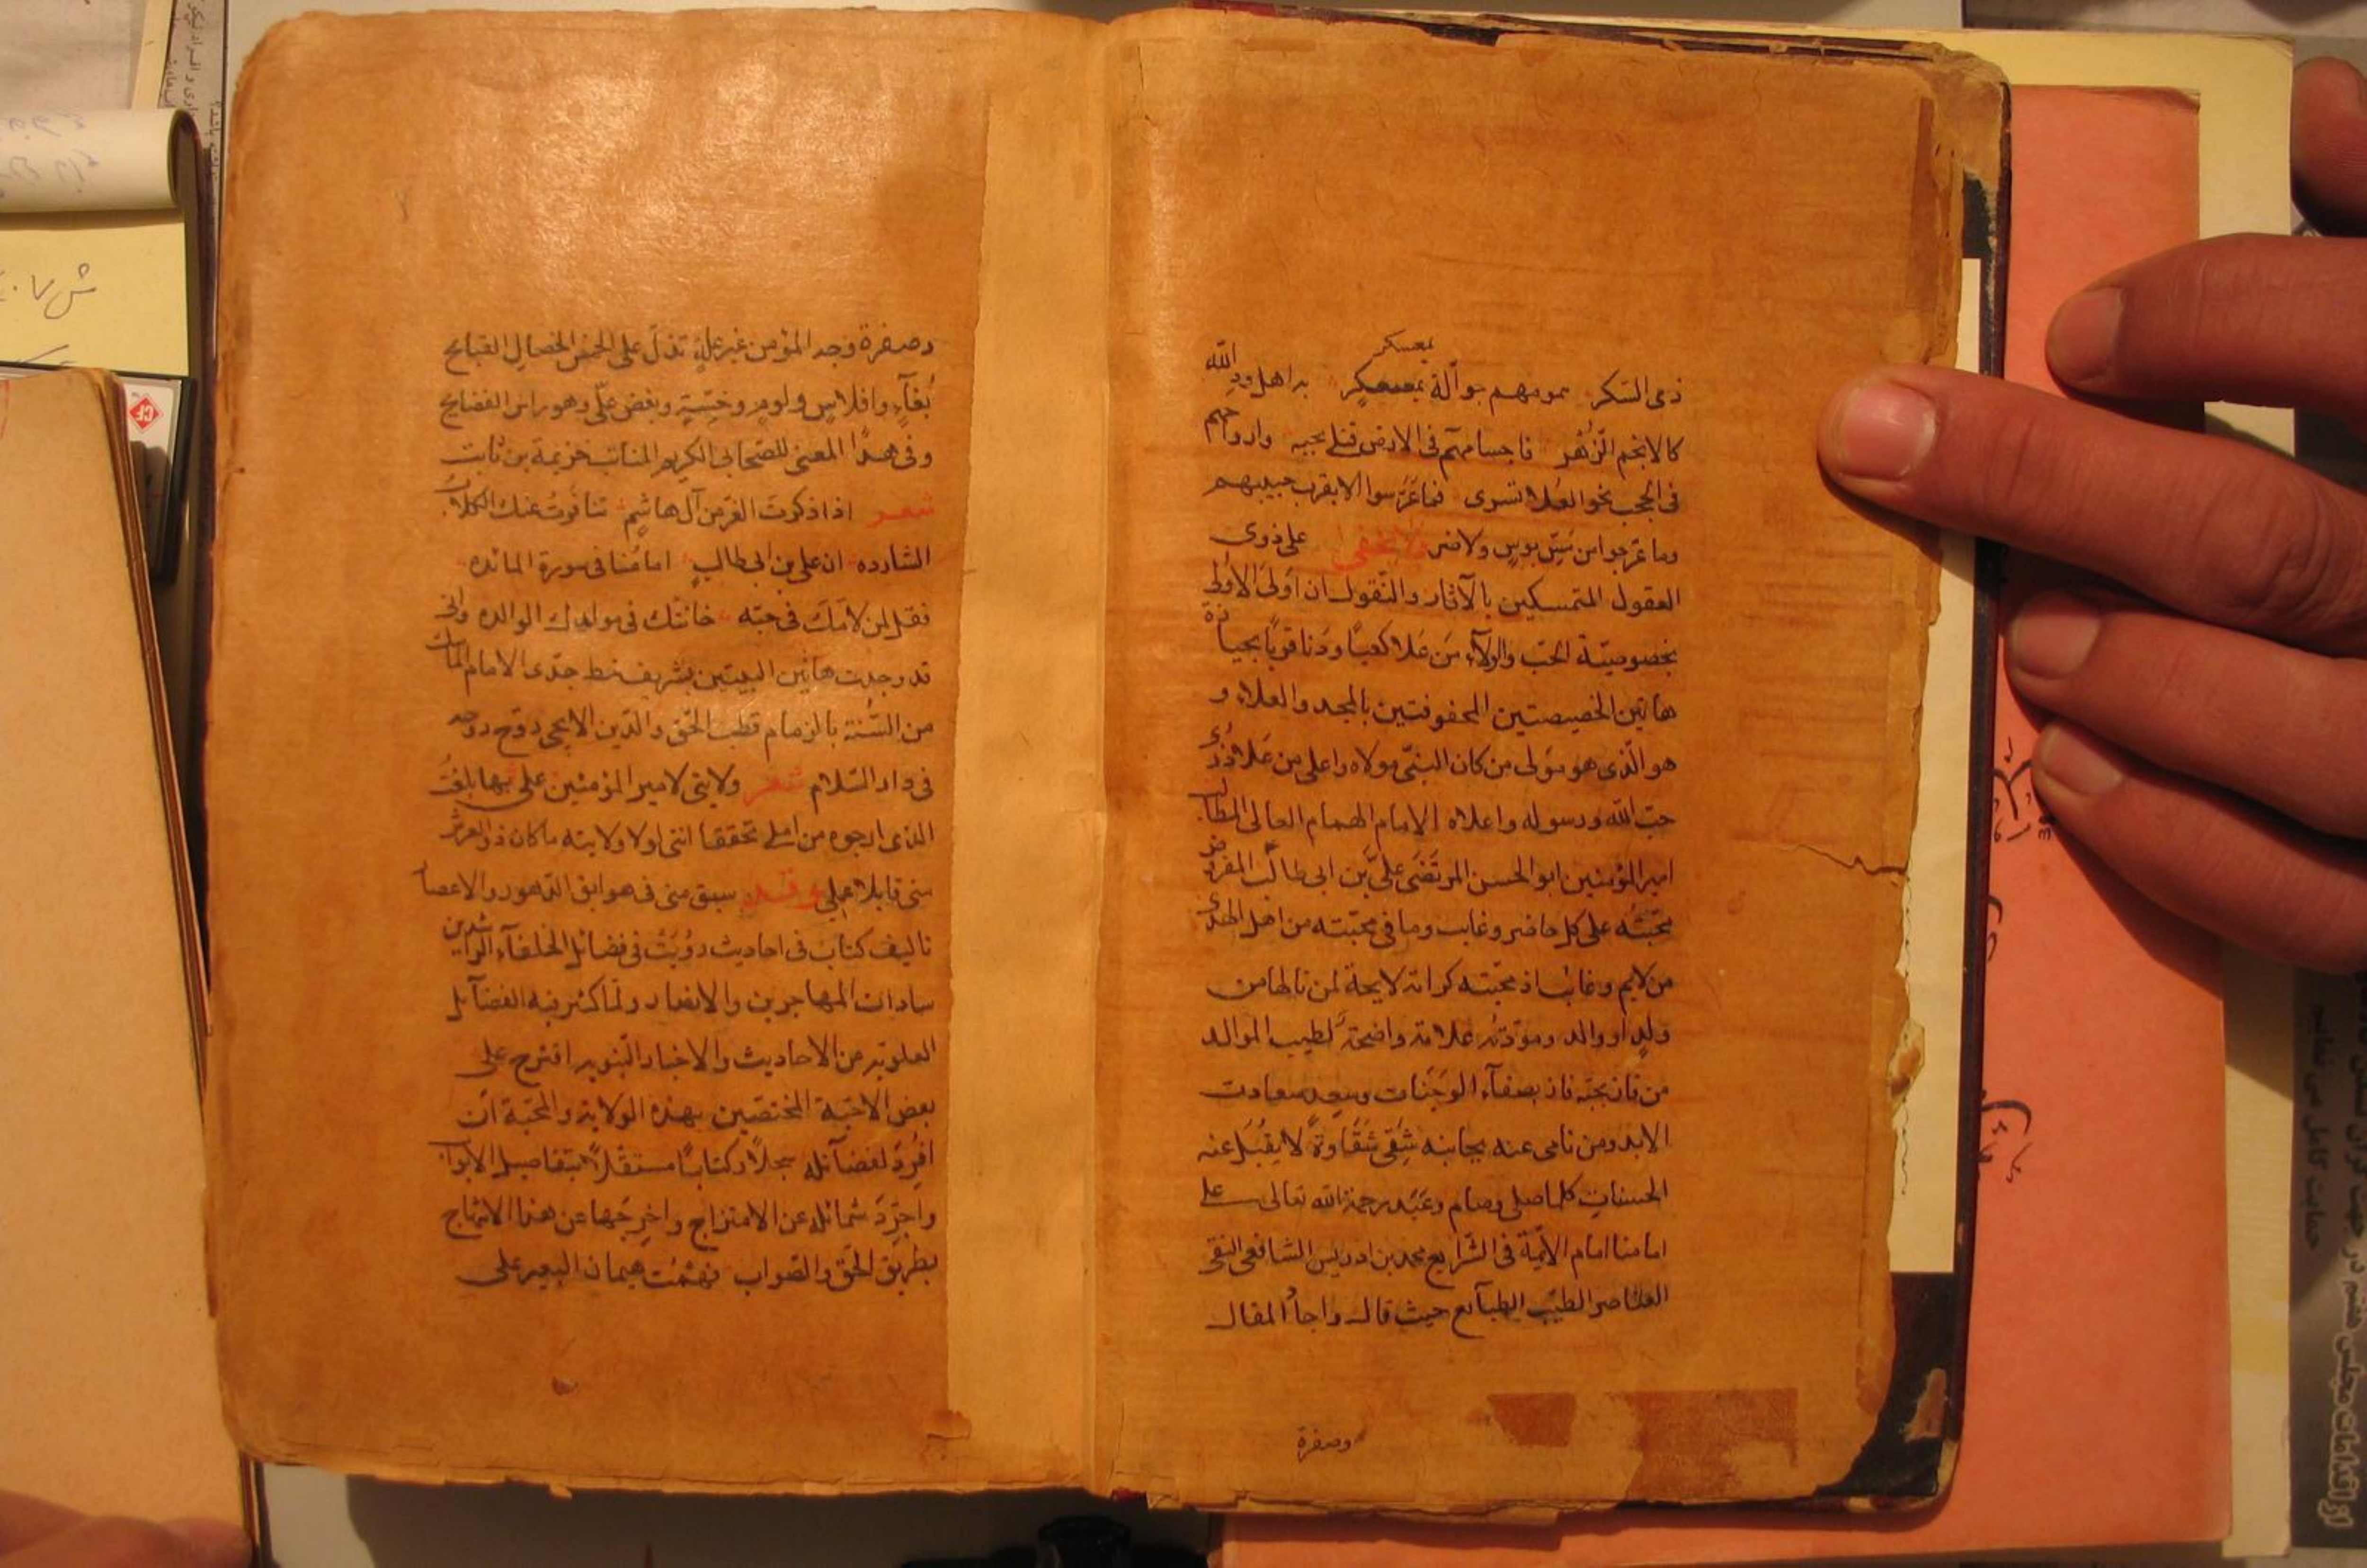 بمعسكر
ذى السكر همومهم جوالة بمعسكر به اهل ود الله
كالانجم الزهر فاجسامهم فى الارض قتلى بحبه وارواحهم
فى الحجب نحو العلا تسرى فما عرسوا الا بقرب حبيبهم
وما عرجوا من مس بوس ولا ضر لا يخفى على ذوى
العقول المتمسكين بالآثار والنقول ان اولى الاولى
بخصوصية الحب والولاء من علا كعبا ودنا قربا بحيازة
هاتين الخصيصتين المحفوفتين بالمجد والعلاء و
هو الذى هو مولى من كان النبى مولاه واعلى من علا ذرى
حب الله ورسوله واعلاه الامام الهمام العالى المطالب
امير المؤمنين ابو الحسن المرتضى على بن ابى طالب المفرض
محبته على كل حاضر وغايب وما فى محبته من اهل الهدى
من لايم وغائب اذ محبته كرامة لايحة لمن نالها من
ولد او والد ومودته علامة واضحة لطيب الموالد
من فاز بحبه فاز بصفاء الوجنات وسعد سعادت
الابد ومن نامى عنه بجانبه شقى شقاوة لا يقبل عنه
الحسنات كلما صلى وصام وعبد رحمة الله تعالى على
امامنا امام الائمة فى الشرايع محمد بن ادريس الشافعى النقى
العناصر الطيب الطبائع حيث قال واجاد المقال
وصفرة
وصفرة وجه المؤمن غير علة تدل على الخمس الخصال القبايح
بغاء وافلاس ولوم وخسة وبغض على وهو راس الفضايح
وفى هذا المعنى للصحابى الكريم المناب خزيمة بن ثابت
شعر اذا ذكرت الغر من آل هاشم تنافرت عنك الكلاب
الشارده ان على بن ابى طالب امامنا فى سورة المائده
فقل لمن لامك فى حبه خانتك فى مولدك الوالده وانى
قد وجدت هاتين البيتين بشريف خط جدى الامام الماسك
من السنة بالزمام قطب الحق والدين الايجى روح روحه
فى دار السلام شعر ولايتى لامير المؤمنين على بها بلغت
الذى ارجوه من املى تحققا اننى لولا ولايته ما كان ذو العرش
منى قابلا عملى وقد سبق منى فى سوابق الدهور والاعصار
تاليف كتاب فى احاديث رويت فى فضائل الخلفاء الراشدين
سادات المهاجرين والانصار ولما كثر فيه الفضائل
العلويه من الاحاديث والاخبار النبويه اقترح على
بعض الاحبة المختصين بهذه الولاية والمحبة ان
افرد لفضائله سجلا وكتابا مستقلا بتفاصيل الابواب
واجرد شمائله عن الامتزاج واخرجها عن هذا الاتماج
بطريق الحق والصواب فهمت هيمان البعير على